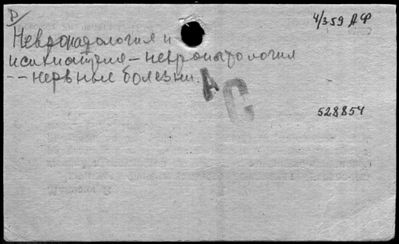 4/359 ДФ
Невропатология и
психиатрия - невропатология
-- нервные болезни.
АС
528854